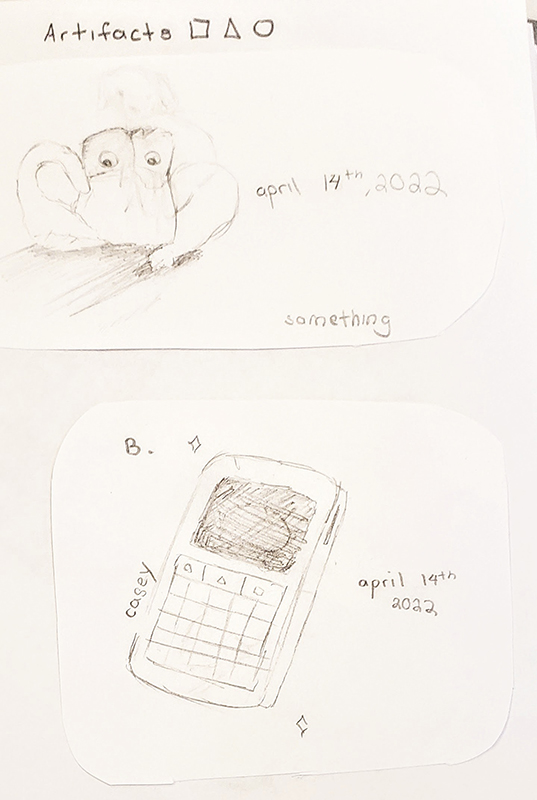 Artifacts
april 14th, 2022
something
B.
casey
april 14th
2022